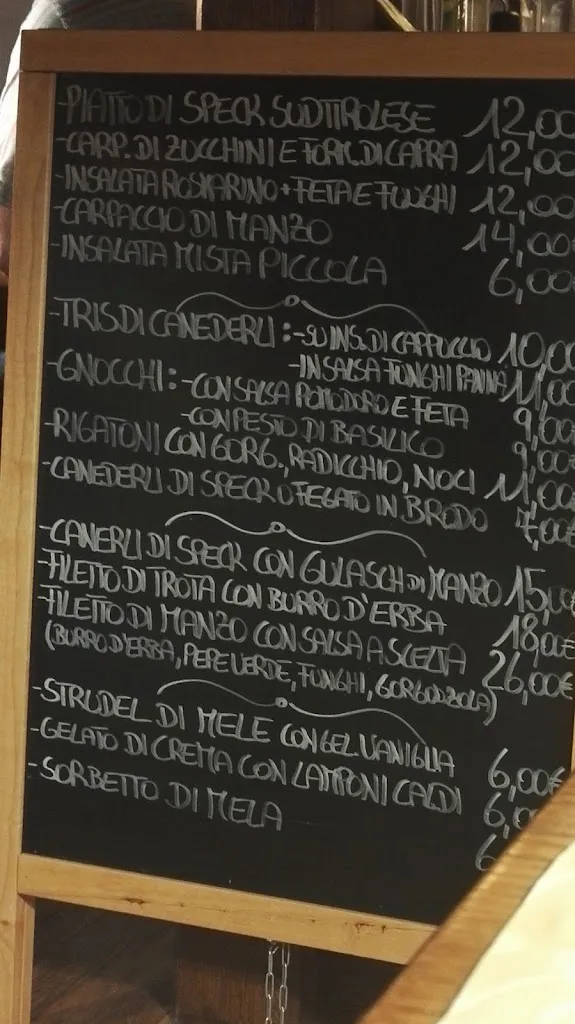 -PIATTO DI SPECK SUDTIROLESE 12,00
-CARP. DI ZUCCHINI E FORM. DI CAPRA 12,00
-INSALATA ROSMARINO + FETA E FUNGHI 12,00
-CARPACCIO DI MANZO 14,00
-INSALATA MISTA PICCOLA 6,00
-TRIS DI CANEDERLI : -SU INS. DI CAPPUCCIO 10,00
-IN SALSA FUNGHI PANNA 11,00
-GNOCCHI : -CON SALSA POMODORO E FETA 9,00
-CON PESTO DI BASILICO 9,00€
-RIGATONI CON GORG., RADICCHIO, NOCI 11,00€
-CANEDERLI DI SPECK O FEGATO IN BRODO 7,00€
-CANERLI DI SPECK CON GULASCH DI MANZO 15,00
-FILETTO DI TROTA CON BURRO D'ERBA 18,00€
-FILETTO DI MANZO CON SALSA A SCELTA 26,00€
(BURRO D'ERBA, PEPE VERDE, FUNGHI, GORGONZOLA)
-STRUDEL DI MELE CON GEL. VANIGLIA 6,00€
-GELATO DI CREMA CON LAMPONI CALDI 6,0
-SORBETTO DI MELA 6